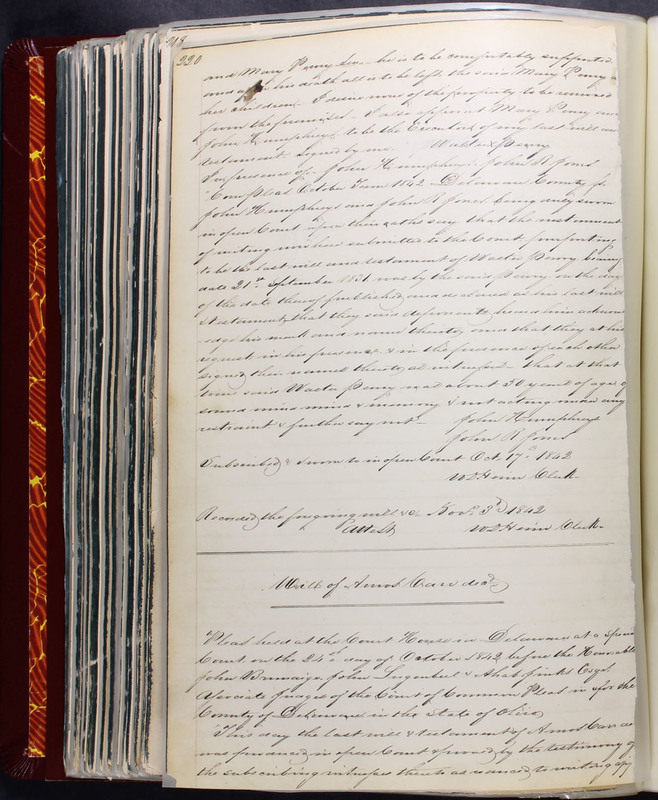 218
220
and Mary Perry her - he is to be comfortably supported
and after his death all is to be left the said Mary Perry
her children. I desire none of the property to be removed
from the premises - I also appoint Mary Perry and
John Humphreys to be the Executors of my last will an
testament - signed by me Walter Perry
In presence of - John Humphreys - John R Jones
Com pleas October Term 1842 - Delaware County ss.
John Humphreys and John R Jones being duly sworn
in open Court upon their oaths say that the instrument
of writing now here submitted to the Court purporting
to be the last will and testament of Walter Perry bearing
date 21st September 1831 was by the said Perry on the day
of the date thereof published and declared as his last will
& testament, that they said deponents heard him acknow
edge his mark and name thereto, and that they at his
request in his presence & in the presence of each other
signed their names thereto as witnesses - that at that
time said Walter Perry was about 50 years of age of
sound mind and memory & not acting under any
restraint & further say not - John Humphreys
John R Jones
Subscribed & sworn to in open Court Oct 17th 1842
W D Heim Clerk -
Recorded the foregoing will &c Nov. 3d 1842
Attest W D Heim Clerk -
Will of Amos Carr decd.
Pleas held at the Court House in Delaware at a special
Court on the 24th day of October 1842 before the Honorable
John Lugenbeel & Ahab Jinks Esqrs
Associate Judges of the Court of Common Pleas in & for the
County of Delaware in the State of Ohio
This day the last will & testament of Amos Carr de
was produced in open Court & proved by the testimony of
the subscribing witnesses thereto as reduced to writing